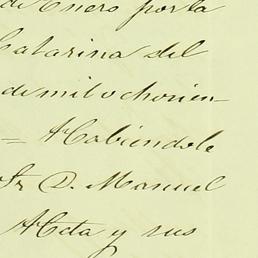 de Enero por la
Catarina del
de mil ochocien-
= Habiendole
Sr. D. Manuel
Acta y sus